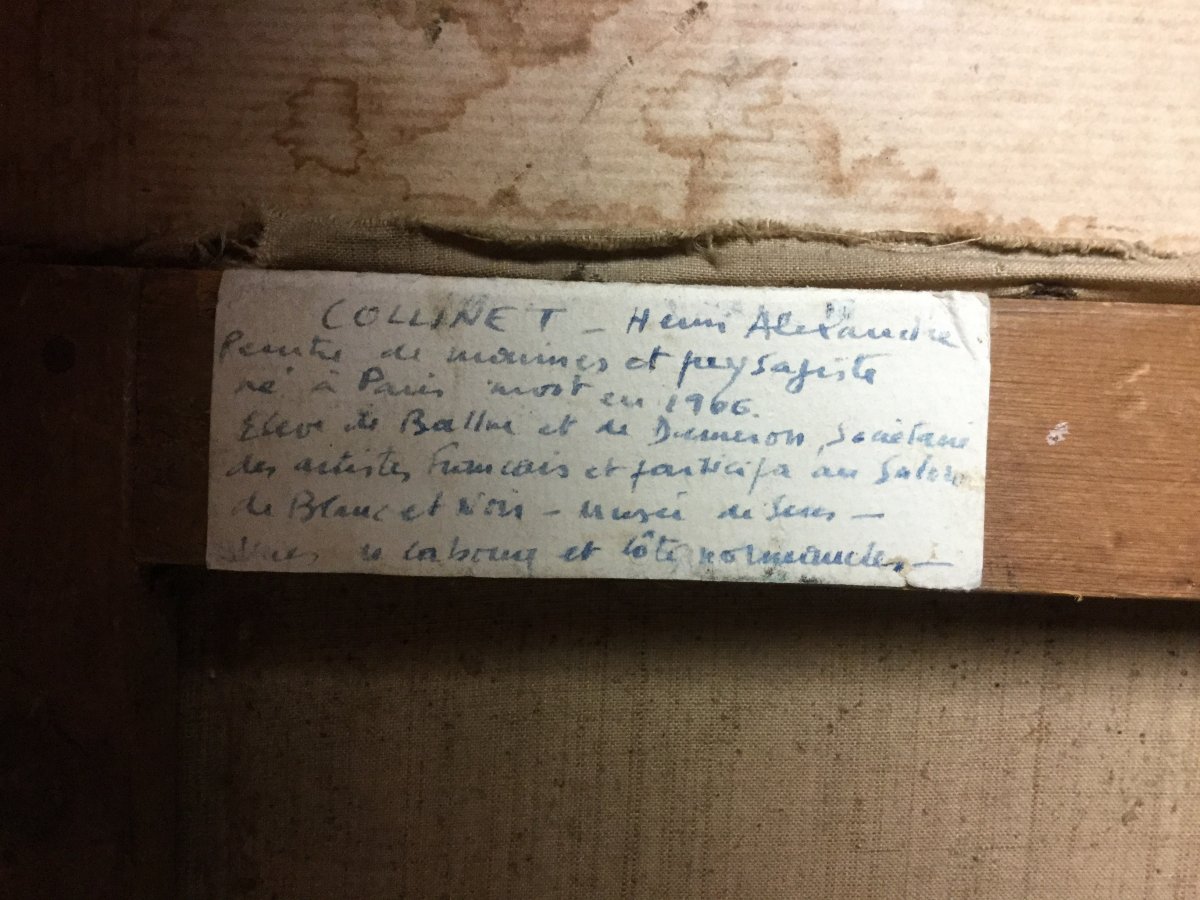 COLLINET - Henri Alexandre
Peintre de marines et paysagiste
né à Paris mort en 1906.
Elève de Ballue et de Dameron, Sociétaire
des artistes Francais et participa au Salon
de Blanc et Noir - Musée de Sens -
de Cabourg et Côte normande, -